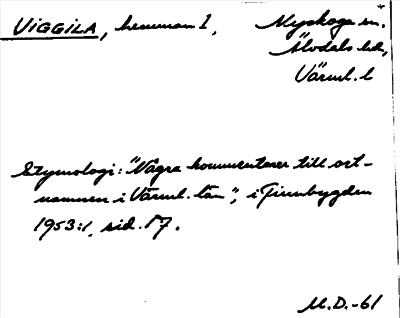 VIGGILA, hemman 1, Nyskoga sn.
Älvdals hd,
Värml. l
Etymologi: "Några kommentarer till ort-
namnen i Värml. län", i Finnbygden
1953:1, sid. 17.
M.D.-61